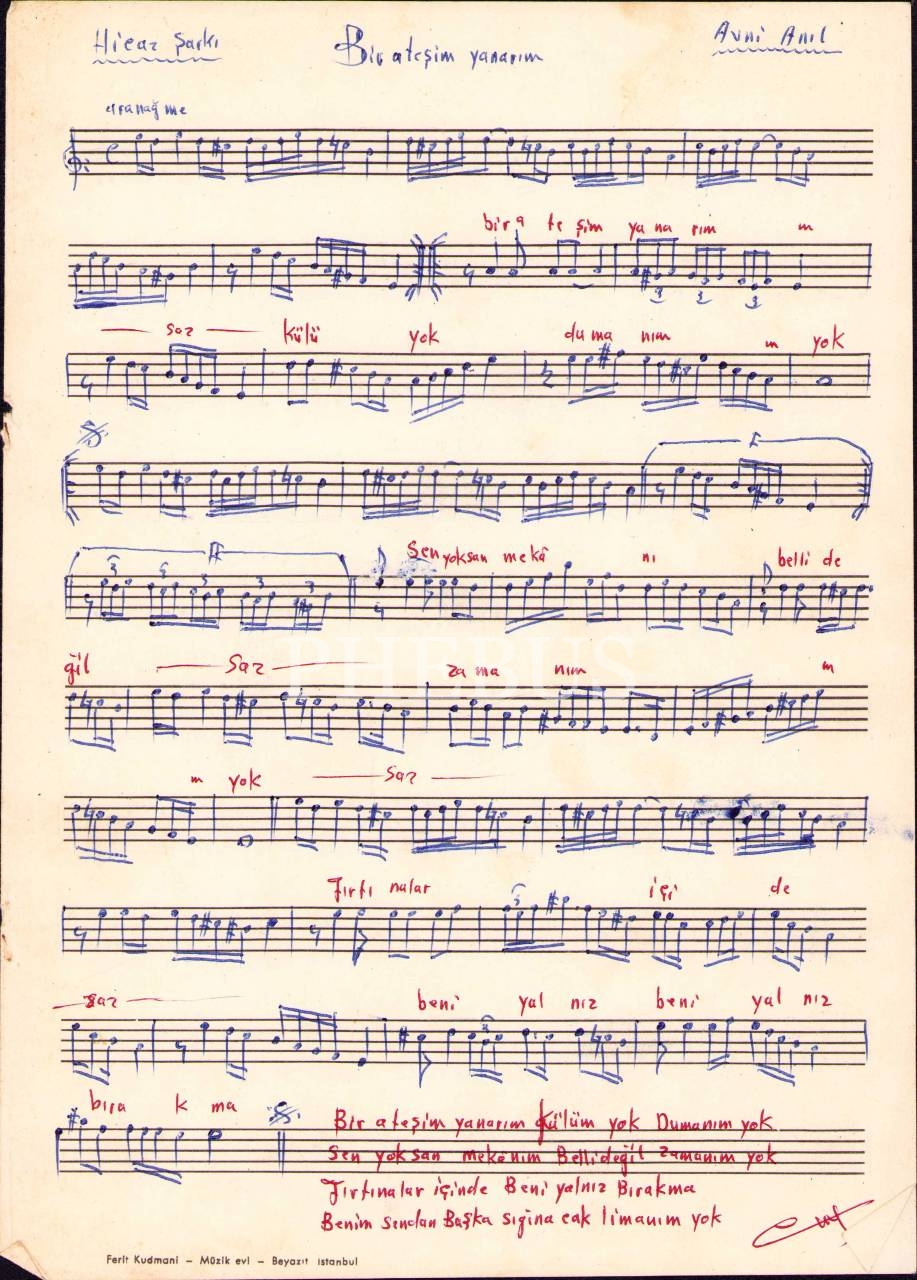 Hicaz Şarkı
Bir ateşim yanarım
Avni Anıl
aranağme
bir a te şim ya na rım m
saz külü yok duma nım m yok
I
II
Sen yoksan mekâ nı belli de
ğil Saz zama nım m
m yok Saz
Fırtı nalar içi de
saz beni yal nız beni yal nız
bıra k ma
Bir ateşim yanarım Külüm yok Dumanım yok
Sen yoksan mekanım Belli değil Zamanım yok
Fırtınalar içinde Beni yalnız Bırakma
Benim senden Başka sığına cak limanım yok
PHEBUS
Ferit Kudmani – Müzik evi – Beyazıt ıstanbul